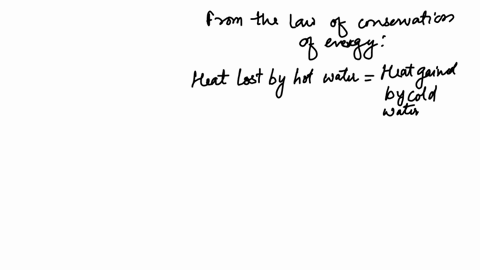 From the law of conservation
of energy:
Heat lost by hot water = Heat gained
by cold
water